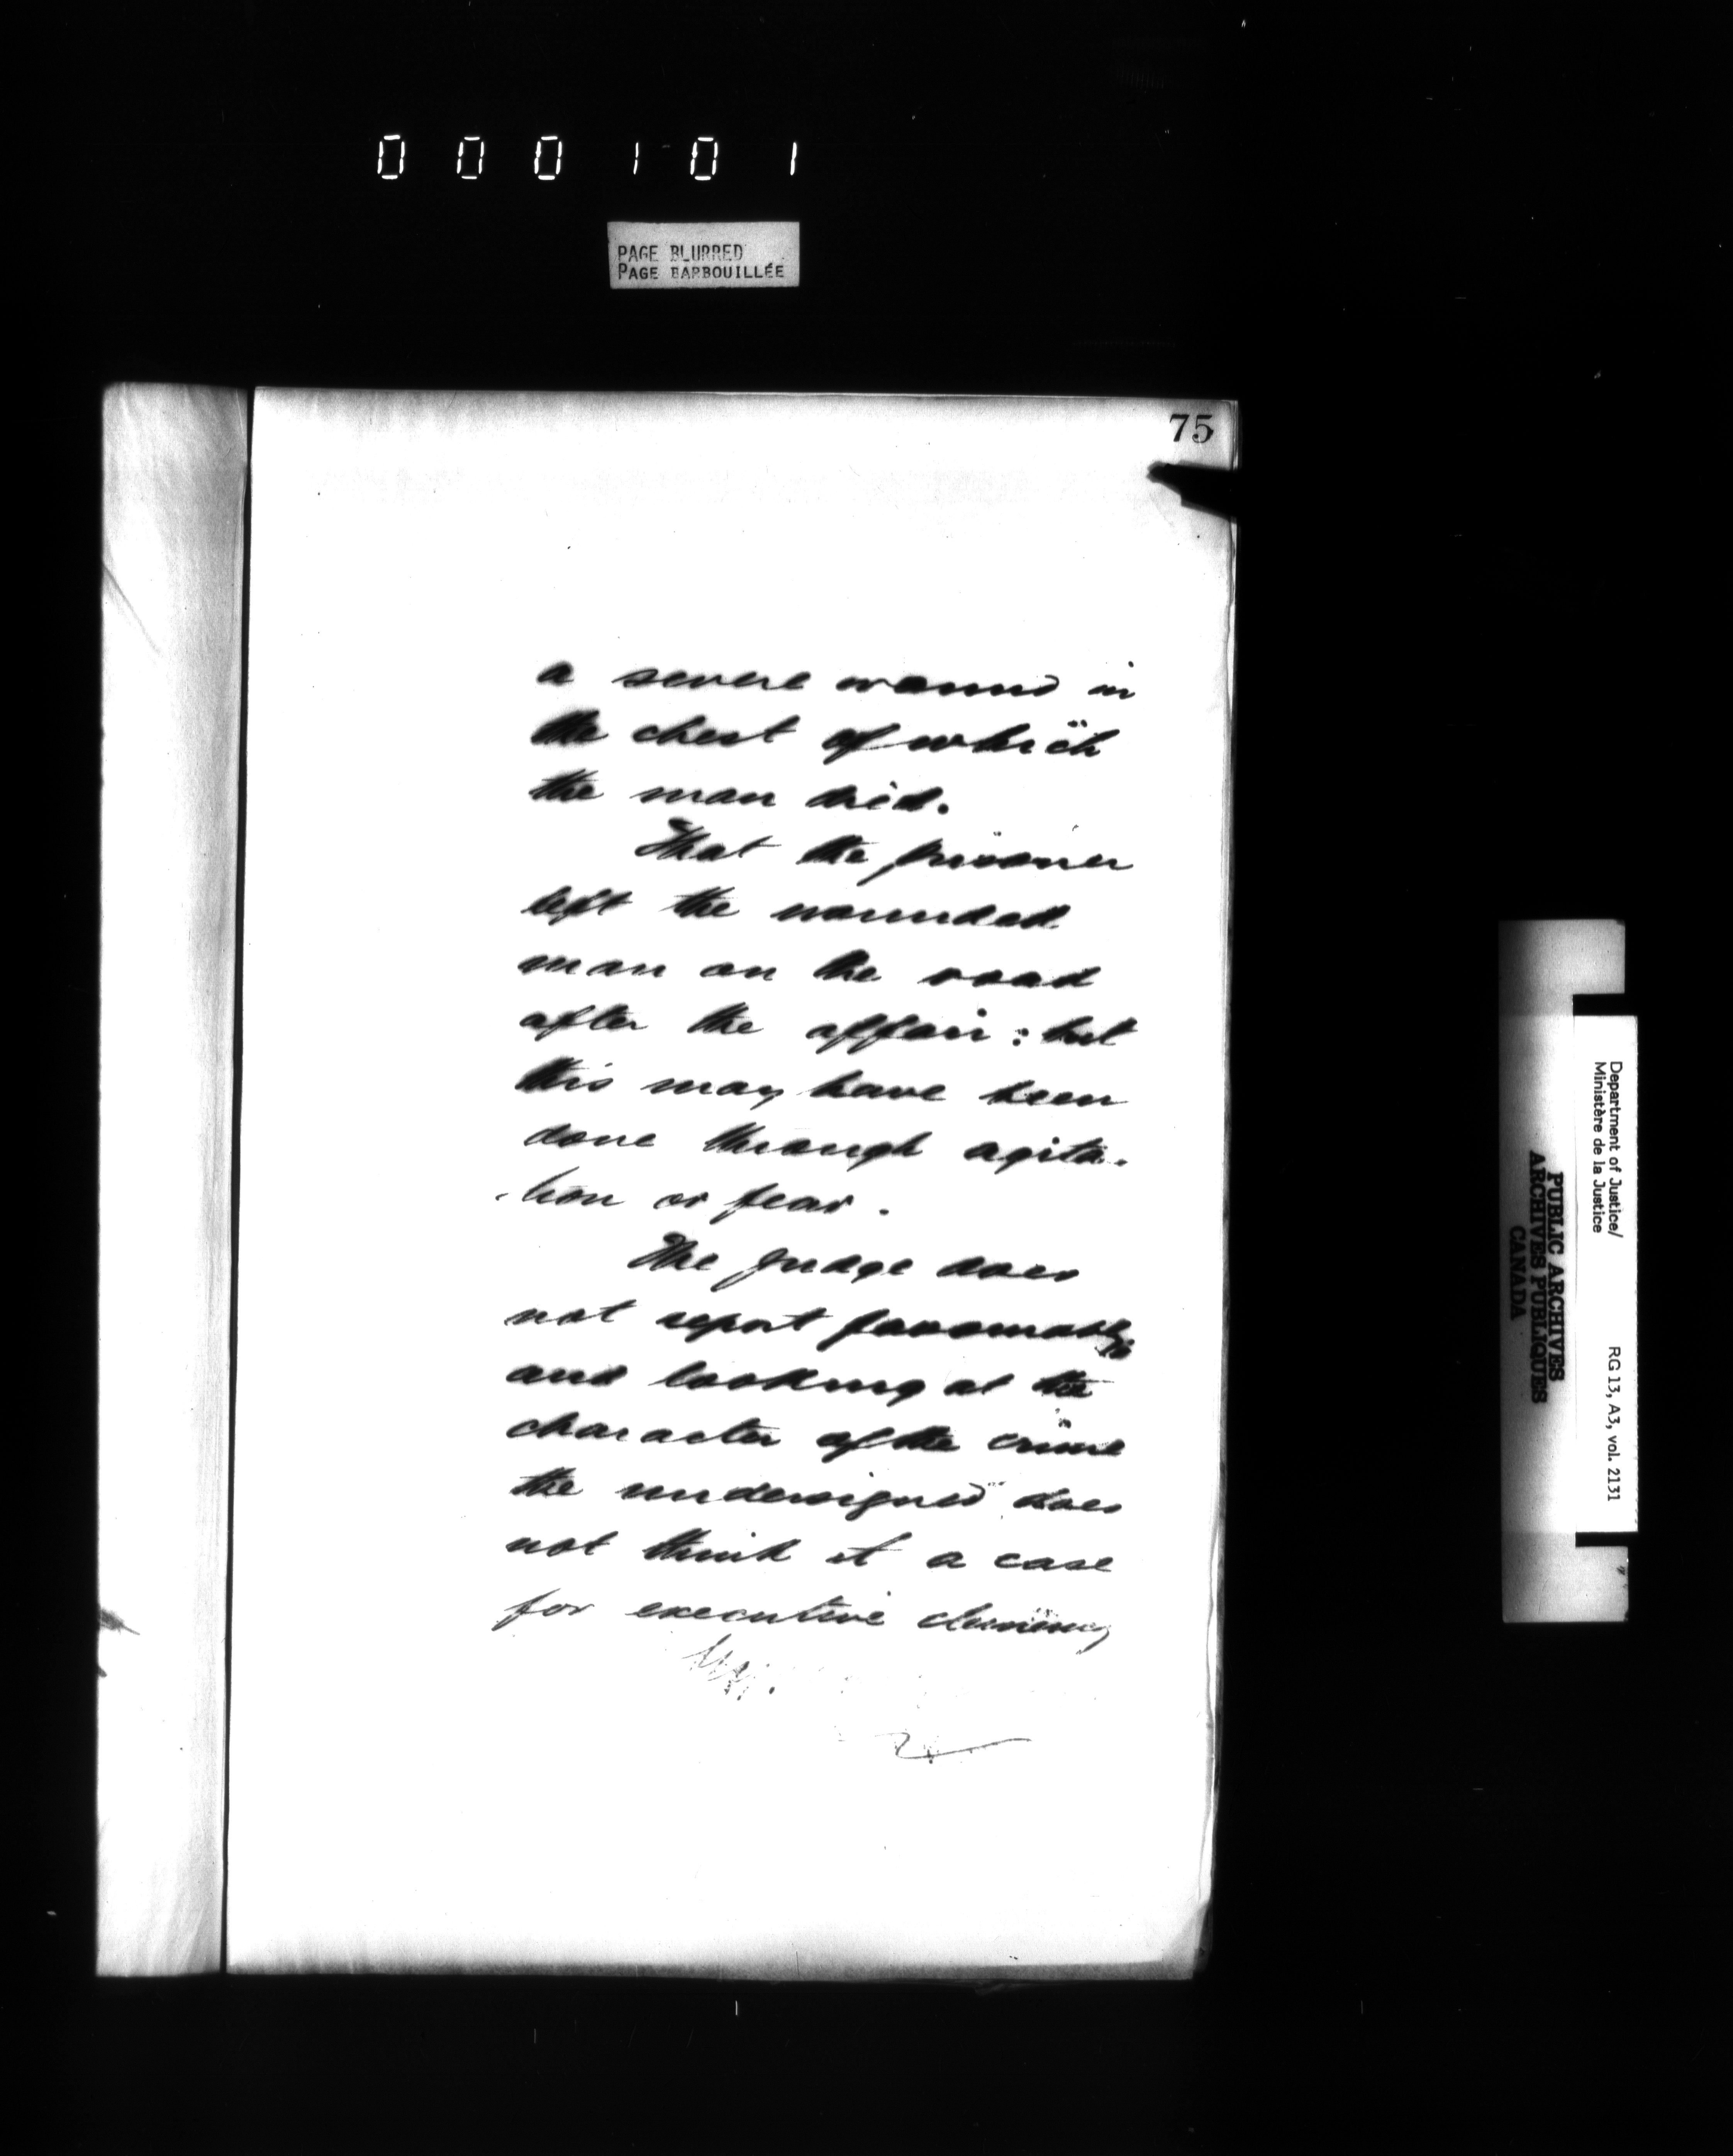 000101
PAGE BLURRED
PAGE BARBOUILLÉE
75
a severe wound in
the chest of which
the man died.
That the prisoner
left the wounded
man on the road
after the affair: but
this may have been
done through agita-
-tion or fear.
The Judge does
not report favourably
and looking at the
character of the crime
the undersigned does
not think it a case
for executive clemency
Department of Justice/
Ministère de la Justice
RG 13, A3, vol. 2131
PUBLIC ARCHIVES
ARCHIVES PUBLIQUES
CANADA